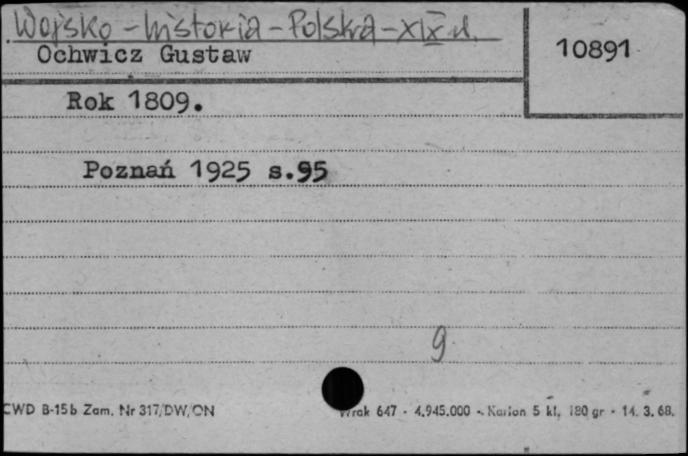 Wojsko - historia - Polska - XIX w.
Ochwicz Gustaw
10891
Rok 1809.
Poznań 1925 s.95
9
CWD B-15b Zam. Nr 317/DW/ON
647 - 4.945.000 - Karton 5 kl. 180 gr - 14. 3. 68.